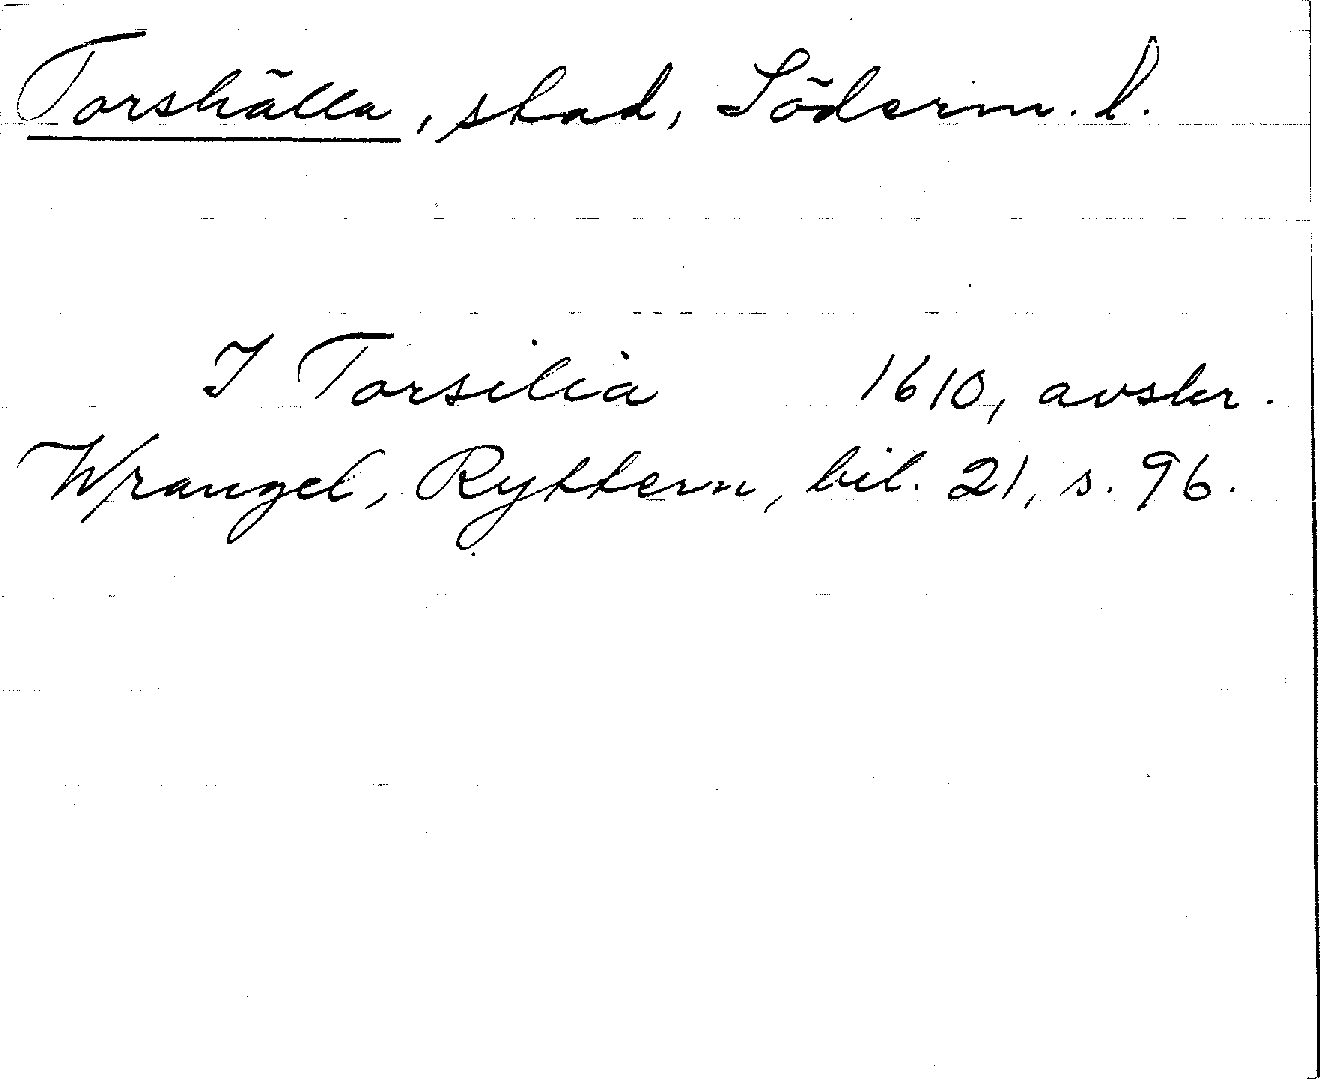 Torshälla, stad, Söderm. l.
I Torsilia 1610, avskr.
Wrangel, Ryttern, bil. 21, s. 96.